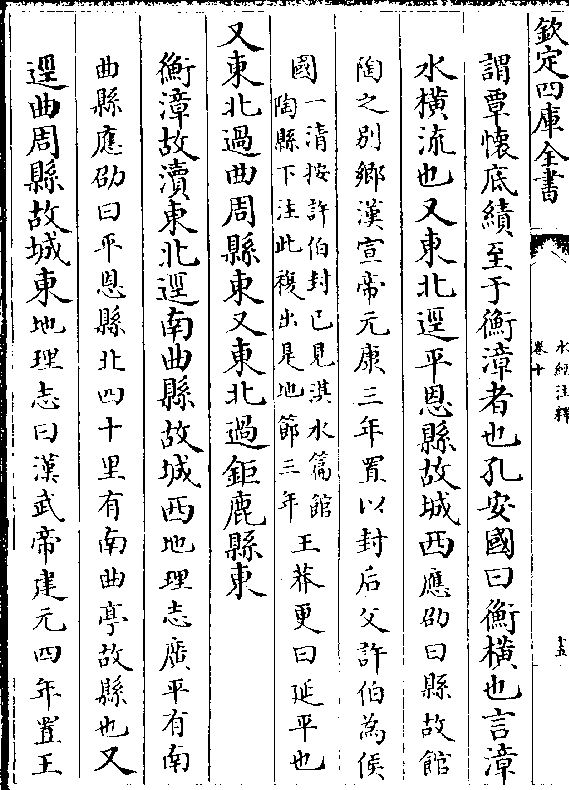 欽定四庫全書
水經注釋
卷十
五
謂覃懷底績至于衡漳者也孔安國曰衡橫也言漳
水橫流也又東北逕平恩縣故城西應劭曰縣故館
陶之别鄉漢宣帝元康三年置以封后父許伯為侯
國一清按許伯封已見淇水篇館
陶縣下注此複出是地節三年
王莽更曰延平也
又東北過曲周縣東又東北過鉅鹿縣東
衡漳故瀆東北逕南曲縣故城西地理志廣平有南
曲縣應劭曰平恩縣北四十里有南曲亭故縣也又
逕曲周縣故城東地理志曰漢武帝建元四年置王